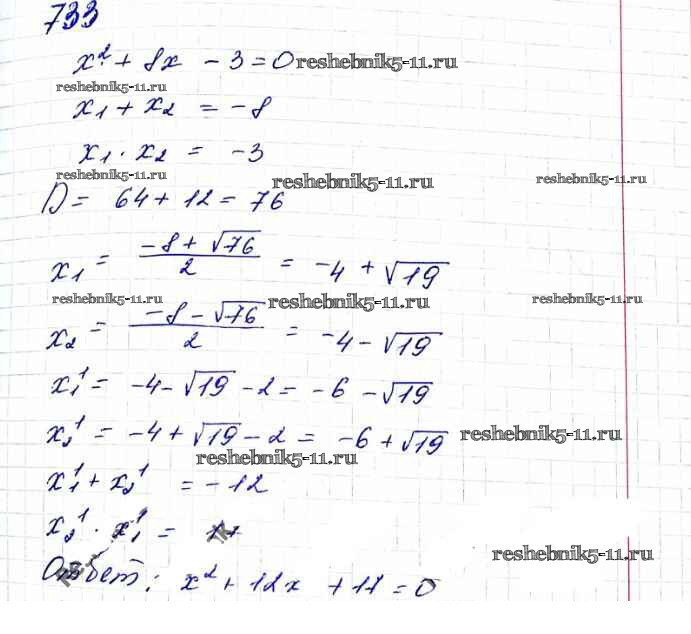 733
x² + 8x - 3 = 0 reshebnik5-11.ru
reshebnik5-11.ru
x₁ + x₂ = -8
x₁ · x₂ = -3
reshebnik5-11.ru reshebnik5-11.ru reshebnik5-11.ru
D = 64 + 12 = 76
x₁ = (-8 + √76)/2 = -4 + √19
reshebnik5-11.ru reshebnik5-11.ru reshebnik5-11.ru
x₂ = (-8 - √76)/2 = -4 - √19
x₁¹ = -4 - √19 - 2 = -6 - √19
x₂¹ = -4 + √19 - 2 = -6 + √19 reshebnik5-11.ru
reshebnik5-11.ru
x₁¹ + x₂¹ = -12
x₂¹ · x₁¹ =
reshebnik5-11.ru
Ответ: x² + 12x + 17 = 0